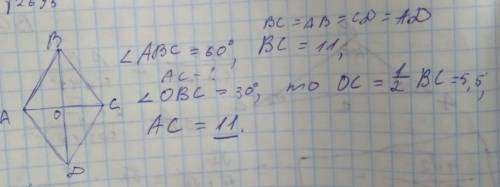 BC = AB = CD = AD
∠ABC = 60°, BC = 11,
AC - ?
∠OBC = 30°, то OC = 1/2 BC = 5,5,
AC = 11.
B
A O C
D